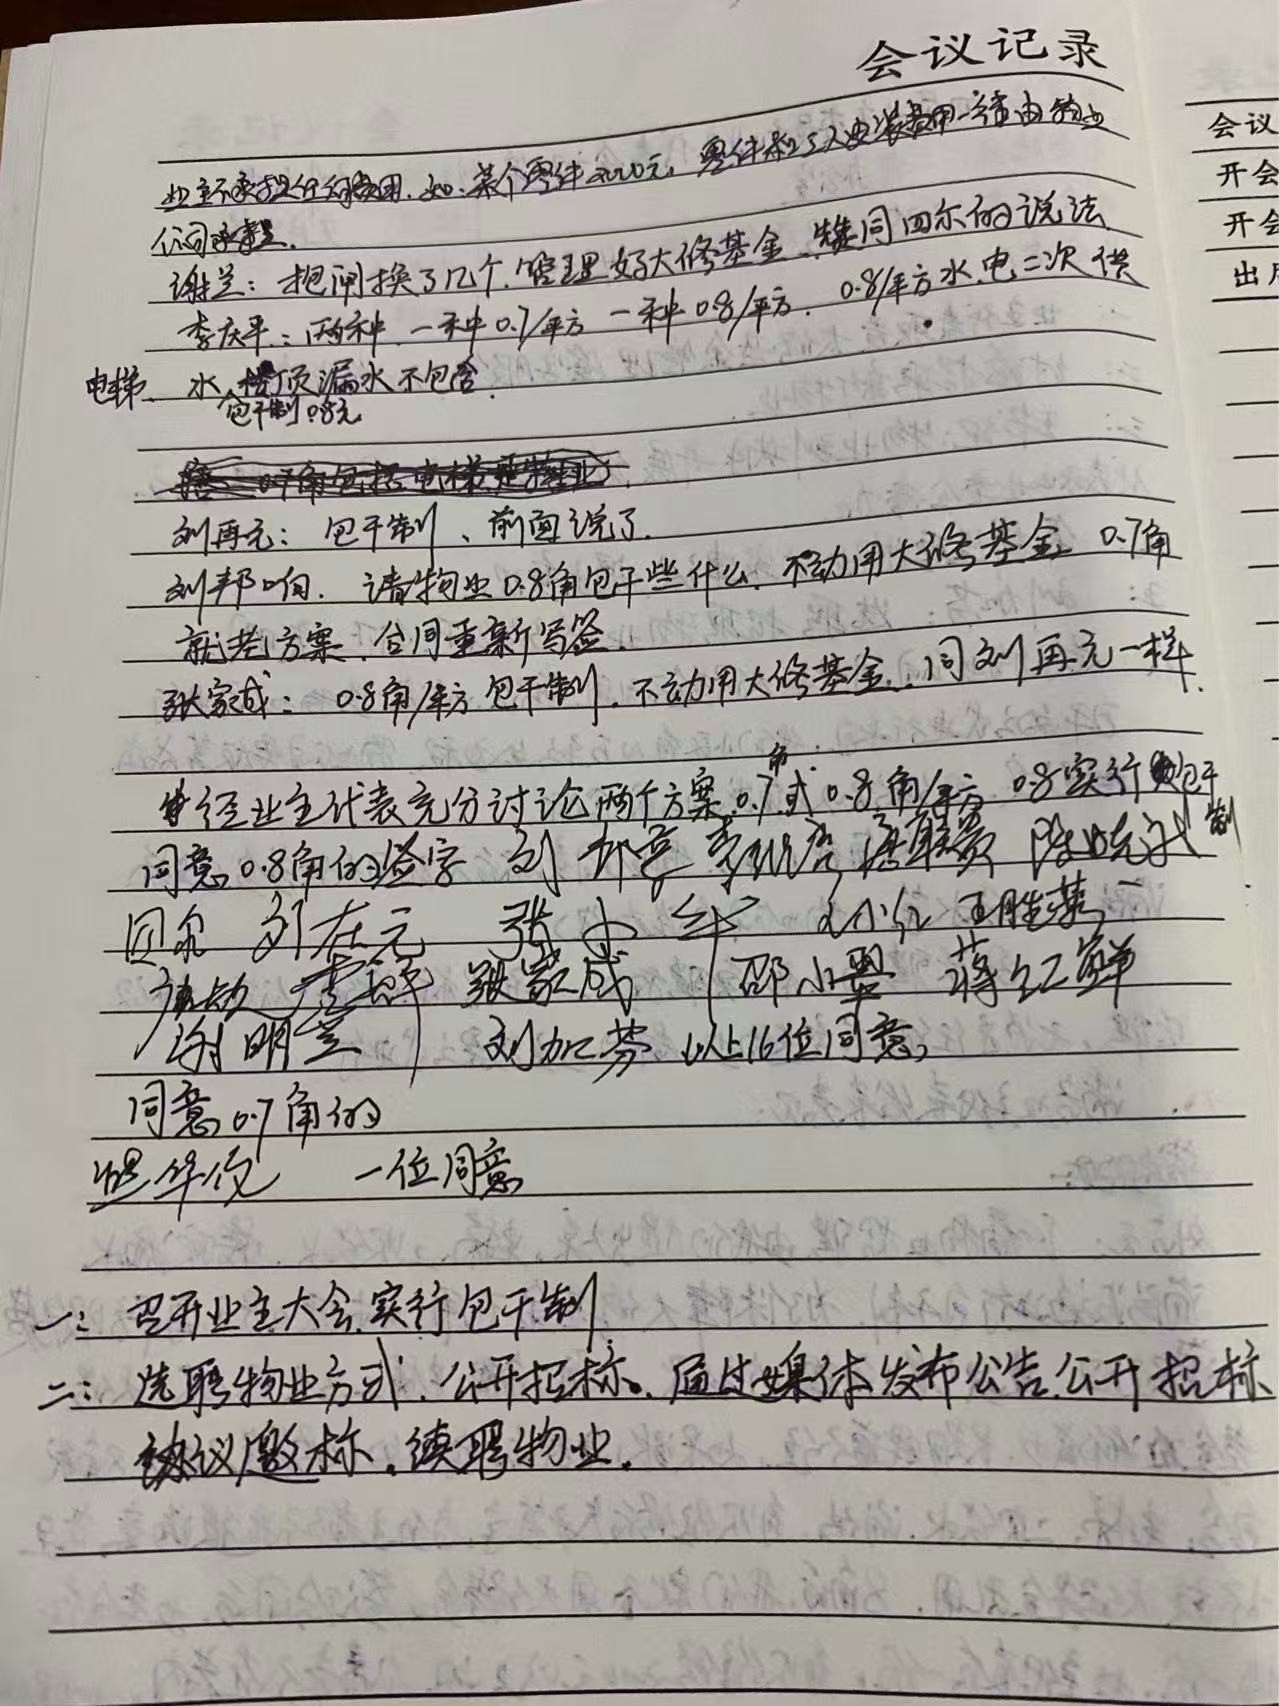 会议记录
业主不承担任何费用.如:某个零件2000元,零件和工人安装费用一律由物业
公司承担.
谢兰:把闸换了几个.管理好大修基金.赞同四尔的说法
李庆平:两种.一种0.7/平方 一种0.8/平方. 0.8/平方水.电.二次供
电梯. 水.楼顶漏水不包含.
包干制0.8元
0.7角包括电梯
刘再元:包干制、前面说了.
刘邦响. 请物业0.8角包干些什么.不动用大修基金 0.7角
就老方案.合同重新写签.
张家成:0.8角/平方包干制.不动用大修基金.同刘再元一样.
经业主代表充分讨论两个方案0.7角或0.8角/平方 0.8实行包干
制
同意0.8角的签字 刘
刘在元 张小红 刘小红 王胜英
张家成 邵小翠 蒋红鲜
谢明兰 刘加芬 以上16位同意
同意0.7角的
一位同意
一:召开业主大会实行包干制
二:选聘物业方式.公开招标.通过媒体发布公告公开招标
协议邀标.续聘物业.
会议
开会
开会
出席